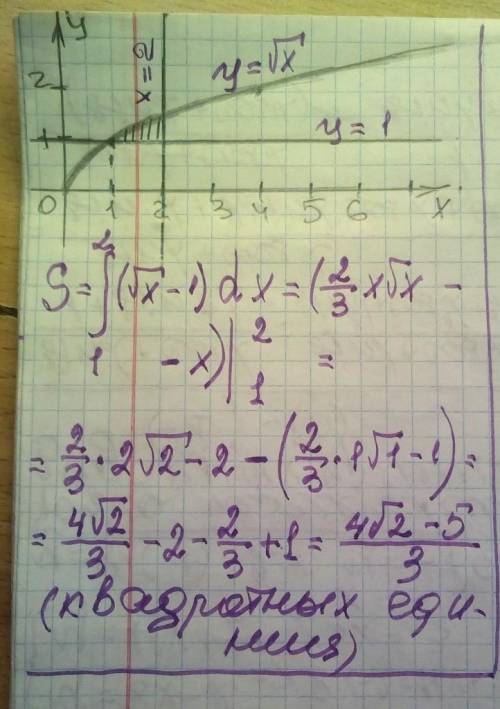 y
2
x = 2
y = √x
1
y = 1
0 1 2 3 4 5 6 x
S = ∫₁² (√x - 1) dx = (2/3 x√x -
- x) |₁² =
= 2/3 · 2√2 - 2 - (2/3 · 1√1 - 1) =
= 4√2/3 - 2 - 2/3 + 1 = (4√2 - 5)/3
(квадратных еди-
ниц)